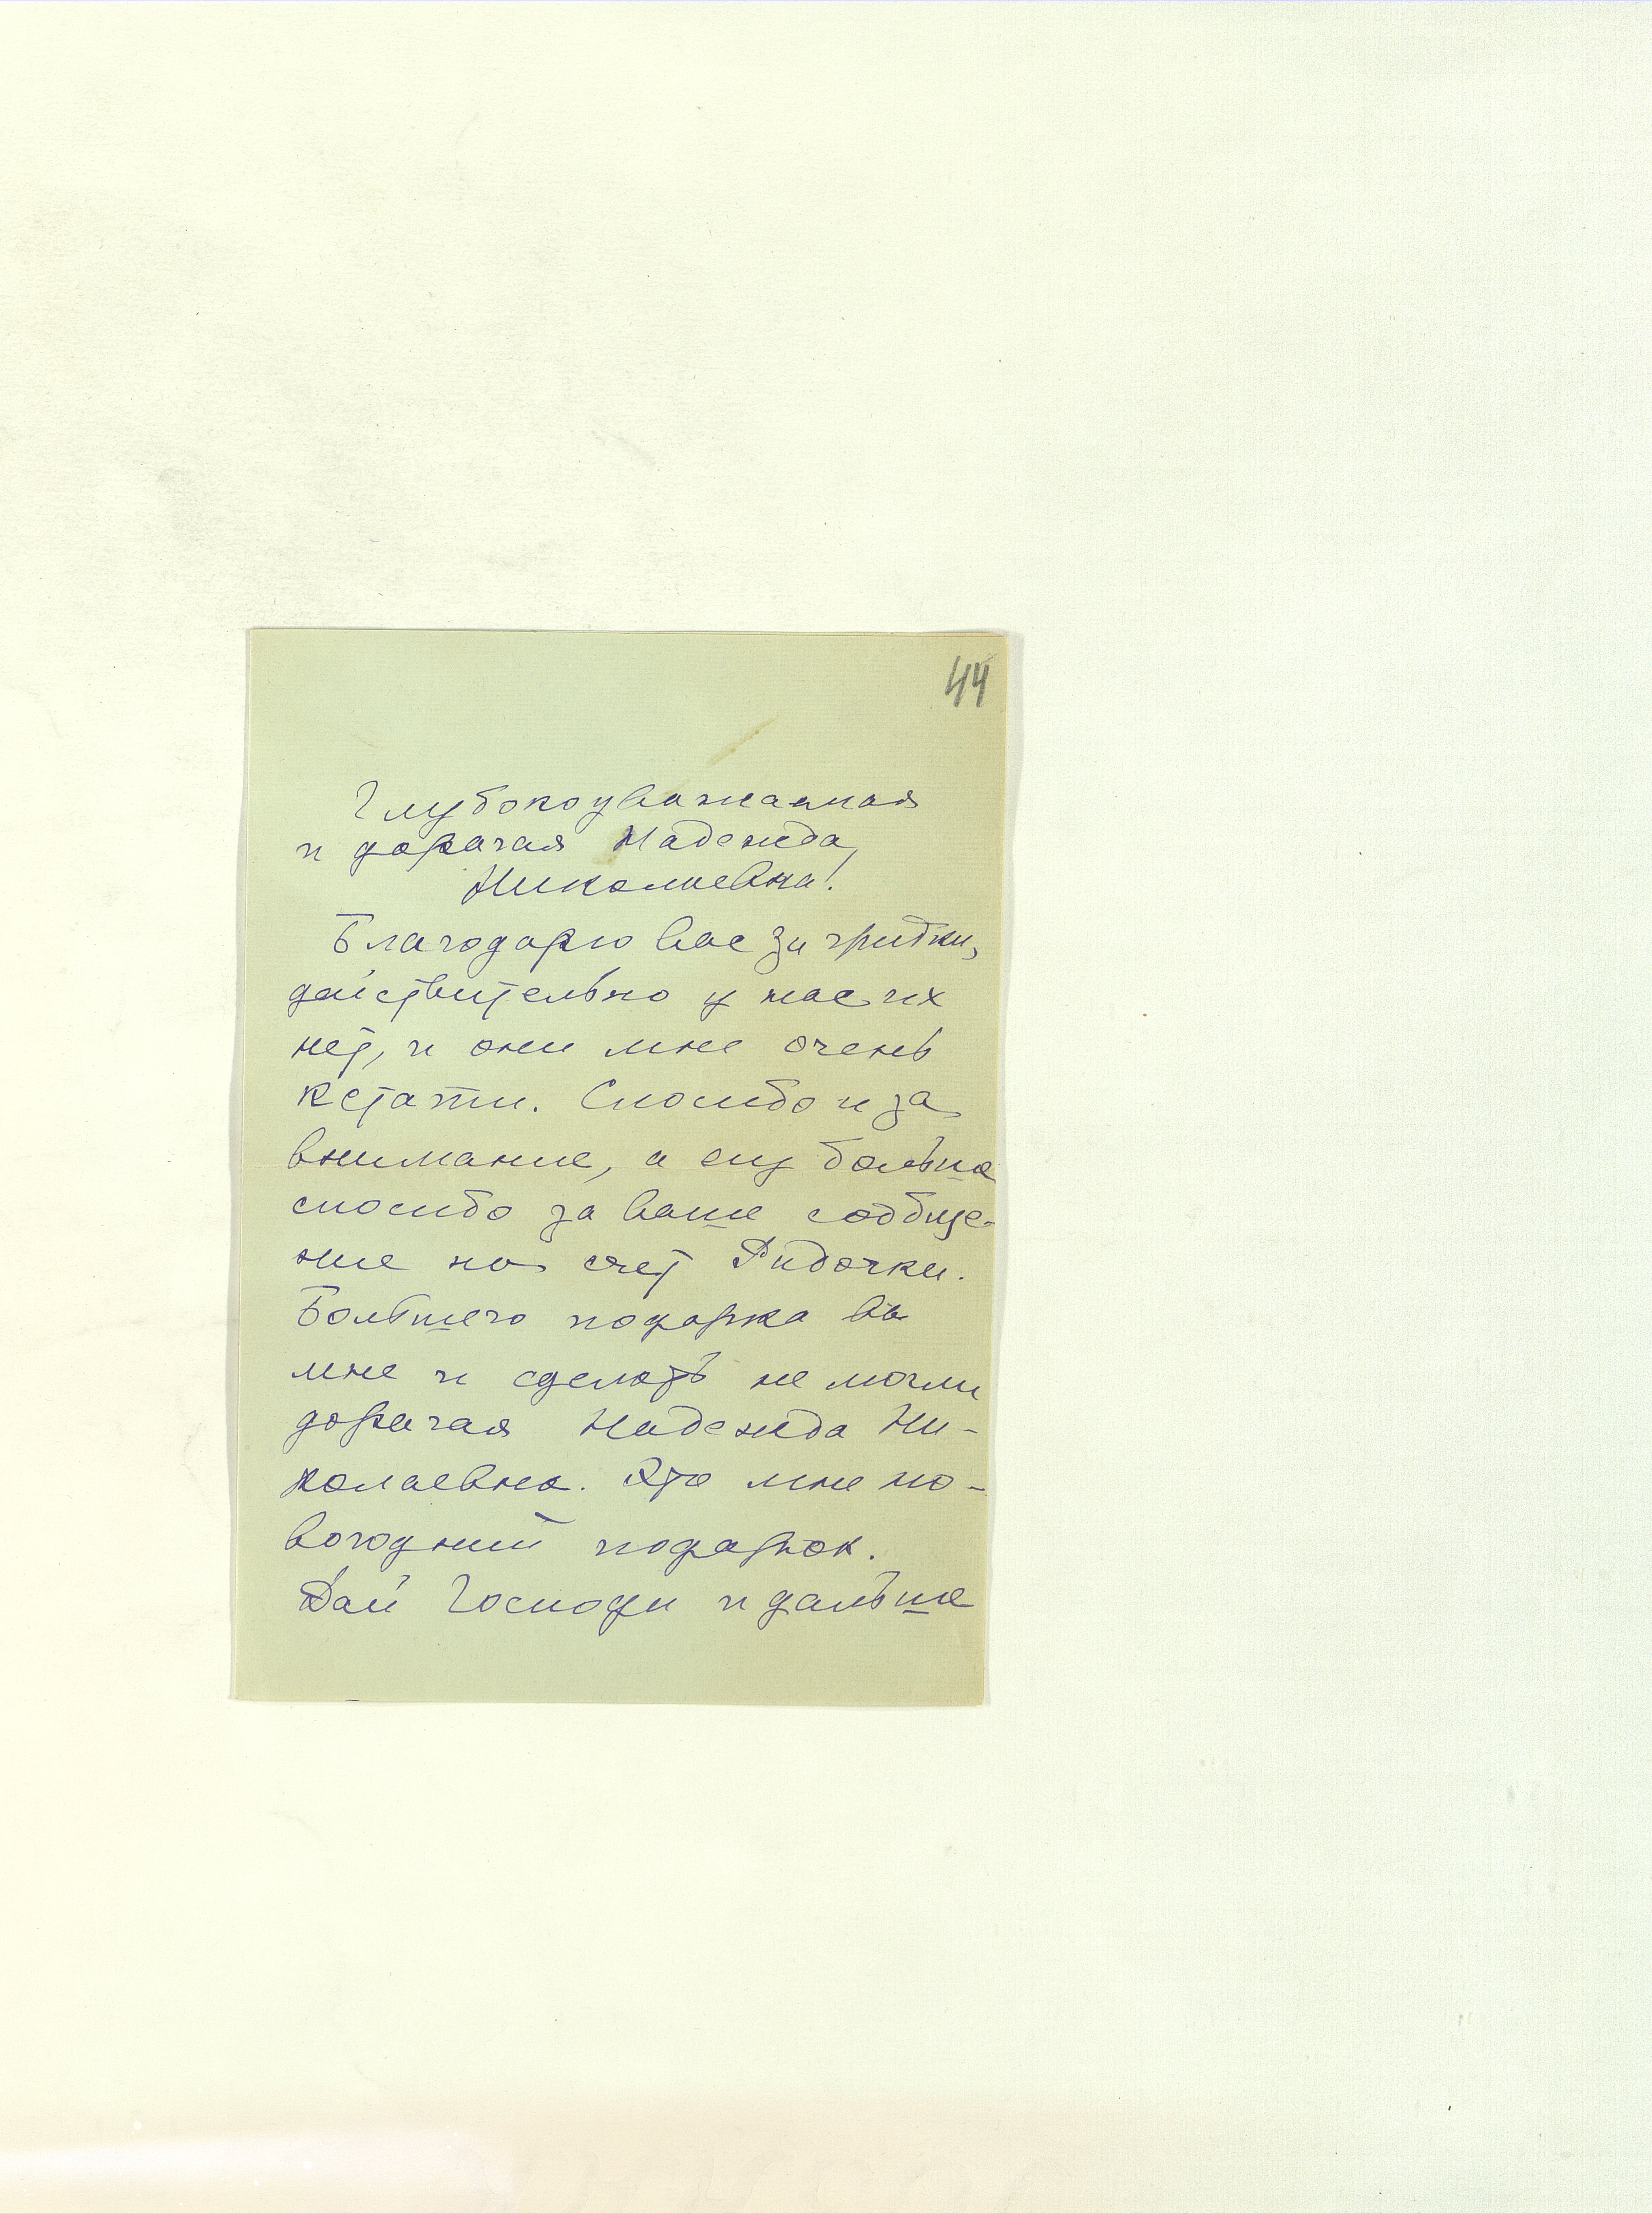 44
Глубокоуважаемая
и дорогая Надежда
Николаевна!
Благодарю вас за грибки,
действительно у нас их
нет, и они мне очень
кстати. Спасибо и за
внимание, а ещ больше
спасибо за ваше сообще-
ние на счет Лидочки.
Большего подарка вы
мне и сделать не могли
дорогая Надежда Ни-
колаевна. Это мне но-
вогодний подарок.
Дай Господи и дальше